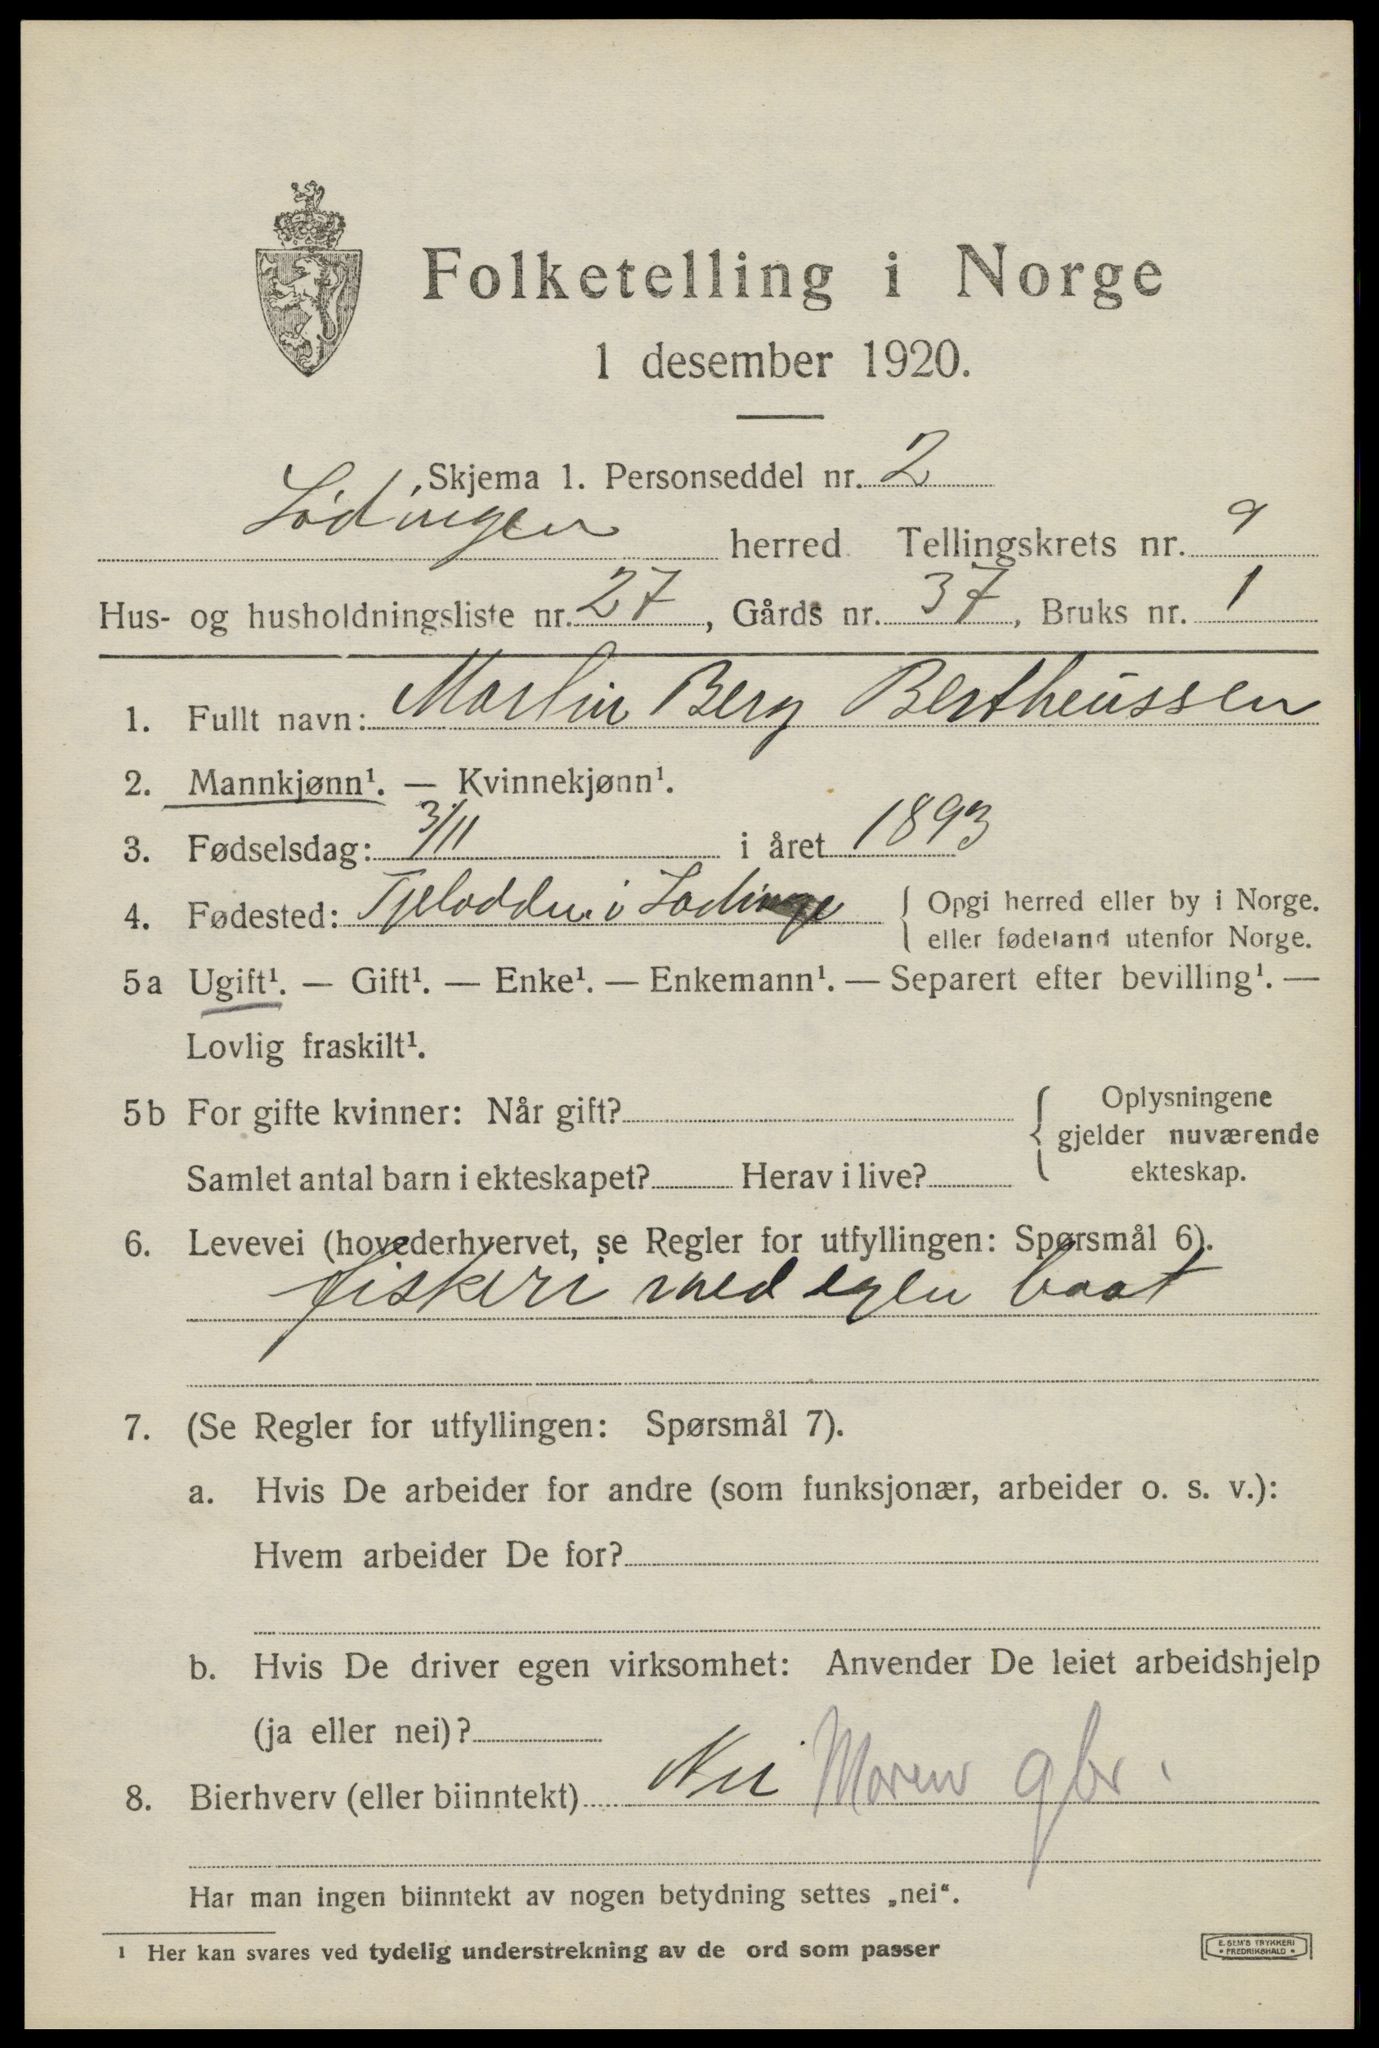 Folketelling i Norge
1 desember 1920.
Skjema 1. Personseddel nr. 2
Lødingen herred Tellingskrets nr. 9
Hus- og husholdningsliste nr. 27, Gårds nr. 37, Bruks nr. 1
1. Fullt navn: Martin Berg Bertheussen
2. Mannkjønn¹. — Kvinnekjønn¹.
3. Fødselsdag: 3/11 i året 1893
4. Fødested: Tjelodden i Lødinge { Opgi herred eller by i Norge.
eller fødeland utenfor Norge.
5a Ugift¹. — Gift¹. — Enke¹. — Enkemann¹. — Separert efter bevilling¹. —
Lovlig fraskilt¹.
5b For gifte kvinner: Når gift? { Oplysningene
gjelder nuværende
Samlet antal barn i ekteskapet? Herav i live? ekteskap.
6. Levevei (hovederhvervet, se Regler for utfyllingen: Spørsmål 6).
fiskeri med egen baat
7. (Se Regler for utfyllingen: Spørsmål 7).
a. Hvis De arbeider for andre (som funksjonær, arbeider o. s. v.):
Hvem arbeider De for?
b. Hvis De driver egen virksomhet: Anvender De leiet arbeidshjelp
(ja eller nei)?
8. Bierhverv (eller biinntekt) Nei Moren gbr.
Har man ingen biinntekt av nogen betydning settes „nei“.
¹ Her kan svares ved tydelig understrekning av de ord som passer
E. SEM'S TRYKKERI
• FREDRIKSHALD •